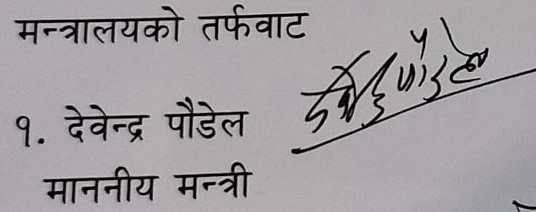 मन्त्रालयको तर्फवाट
१. देवेन्द्र पौडेल
माननीय मन्त्री